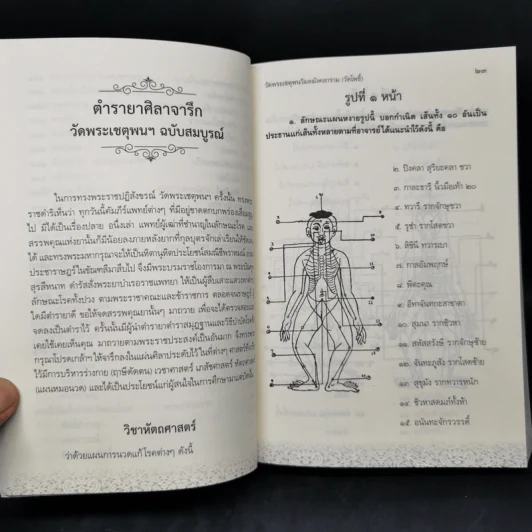 ตำรายาศิลาจารึก
วัดพระเชตุพนฯ ฉบับสมบูรณ์
ในการทรงพระราชปฏิสังขรณ์ วัดพระเชตุพนฯ ครั้งนั้น ทรงพระ
ราชดำริเห็นว่า ทุกวันนี้คัมภีร์แพทย์ต่างๆ ที่มีอยู่ขาดตกบกพร่องเสื่อมสูญ
ไป มิได้เป็นเรื่องปลาย อนึ่งเล่า แพทย์ผู้เฒ่าที่ชำนาญในลักษณะโรค และ
สรรพคุณแห่งยานั้นก็มีน้อยลง
และทรงพระมหากรุณาจะให้เป็นหิตานุหิตประโยชน์
ประชาราษฎร์ในขัณฑสีมาสืบไป จึงมีพระบรมราชโองการมา ณ พระบัณฑูร
สุรสีหนาท ดำรัสสั่งพระยาบำเรอราชแพทยา ให้เป็นผู้สืบเสาะแสวงหาตำรา
ลักษณะโรคทั้งปวง ตามพระราชาคณะและข้าราชการ ตลอดจนราษฎร
ใดมีตำรายาดี ขอให้จดสรรพคุณยานั้นๆ มาถวาย
จดลงเป็นตำราไว้ ครั้นนั้นมีผู้นำตำรายาตำราสมุฏฐานและวิธีบำบัดโรค
เคยใช้เคยเห็นคุณ มาถวายตามพระราชประสงค์
กรุณาโปรดเกล้าฯ ให้จารึกลงในแผ่นศิลาประดับไว้ในที่ต่างๆ
ไว้มีการบริหารร่างกาย (ฤาษีดัดตน) เวชศาสตร์ เภสัชศาสตร์ หัตถศาสตร์
(แผนหมอนวด) และได้เป็นประโยชน์แก่ผู้สนใจในการศึกษามาแต่บัดนั้น
วิชาหัตถศาสตร์
ว่าด้วยแผนการนวดแก้โรคต่างๆ ดังนี้
วัดพระเชตุพนวิมลมังคลาราม (วัดโพธิ์) ๒๓
รูปที่ ๑ หน้า
๑. ลักษณะแผนหงายรูปนี้ บอกกำเนิด เส้นทั้ง ๑๐ อันเป็น
ประธานแก่เส้นทั้งหลายตามที่อาจารย์ได้แนะนำไว้ดังนี้ คือ
๒. ปิงคลา สุริยะคลา ขวา
๓. กาละธารี นิ้วมือเท้า ๒๐
๔. ทวารี รากจักษุขวา
๕. รุชำ รากโสตขวา
๖. สิขินี ทวารเบา
๗. กาลอัมพฤกษ์
๘. พิตะคุณ
๙. อีทาจันทะกะลาซ้าย
๑๐. สุมนา รากชิวหา
๑๑. สหัสสรังษี รากจักษุซ้าย
๑๒. จันทะภูสัง รากโสตซ้าย
๑๓. สุขุมัง รากทวารหนัก
๑๔. ชิวหาสดมภ์ทั้งห้า
๑๕. อนันทะจักรวรรดิ์